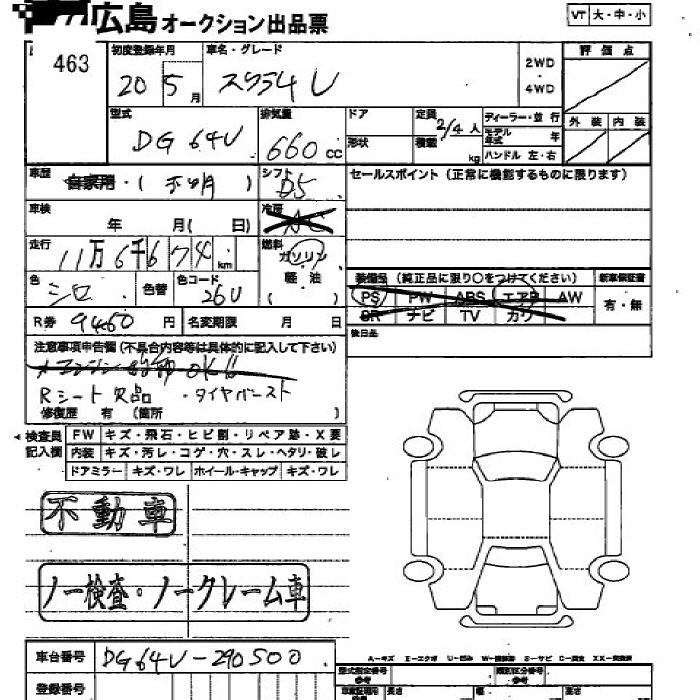 広島 オークション出品票
VT 大・中・小
463
初度登録年月 車名・グレード
20 5月 スクラム V
2WD
・
4WD
評価点
外装 内装
型式 排気量 ドア 定員 ディーラー・並行
DG 64V 660cc 形状 2/4人
積載 kg
モデル年式 年
ハンドル 左・右
車歴 自家用・( 不明 ) シフト D5
セールスポイント (正常に機能するものに限ります)
車検 年 月( 日) 冷房 AC
走行 11万6千674km 燃料 ガソリン
軽・油
( )
色 シロ 色替 色コード 26U
装備品 (純正品に限り○をつけてください) 新車保証書
PS PW ABS エアB AW 有・無
SR ナビ TV カワ
R券 9460円 名変期限 月 日
後日品
注意事項申告欄 (不具合内容等は具体的に記入して下さい)
Rシート欠品 ・タイヤバースト
修復歴 有 (箇所 )
検査員記入欄
FW キズ・飛石・ヒビ割・リペア跡・X要
内装 キズ・汚レ・コゲ・穴・スレ・ヘタリ・破レ
ドアミラー キズ・ワレ ホイール・キャップ キズ・ワレ
不動車
ノー検査・ノークレーム車
A…キズ E…エクボ U…凹み W…補修跡 S…サビ C…腐食 XX…交換済
車台番号 DG64V-290500
型式指定番号 参考 類別区分番号 参考
登録番号
車車証明用 参考 長さ 幅 高さ